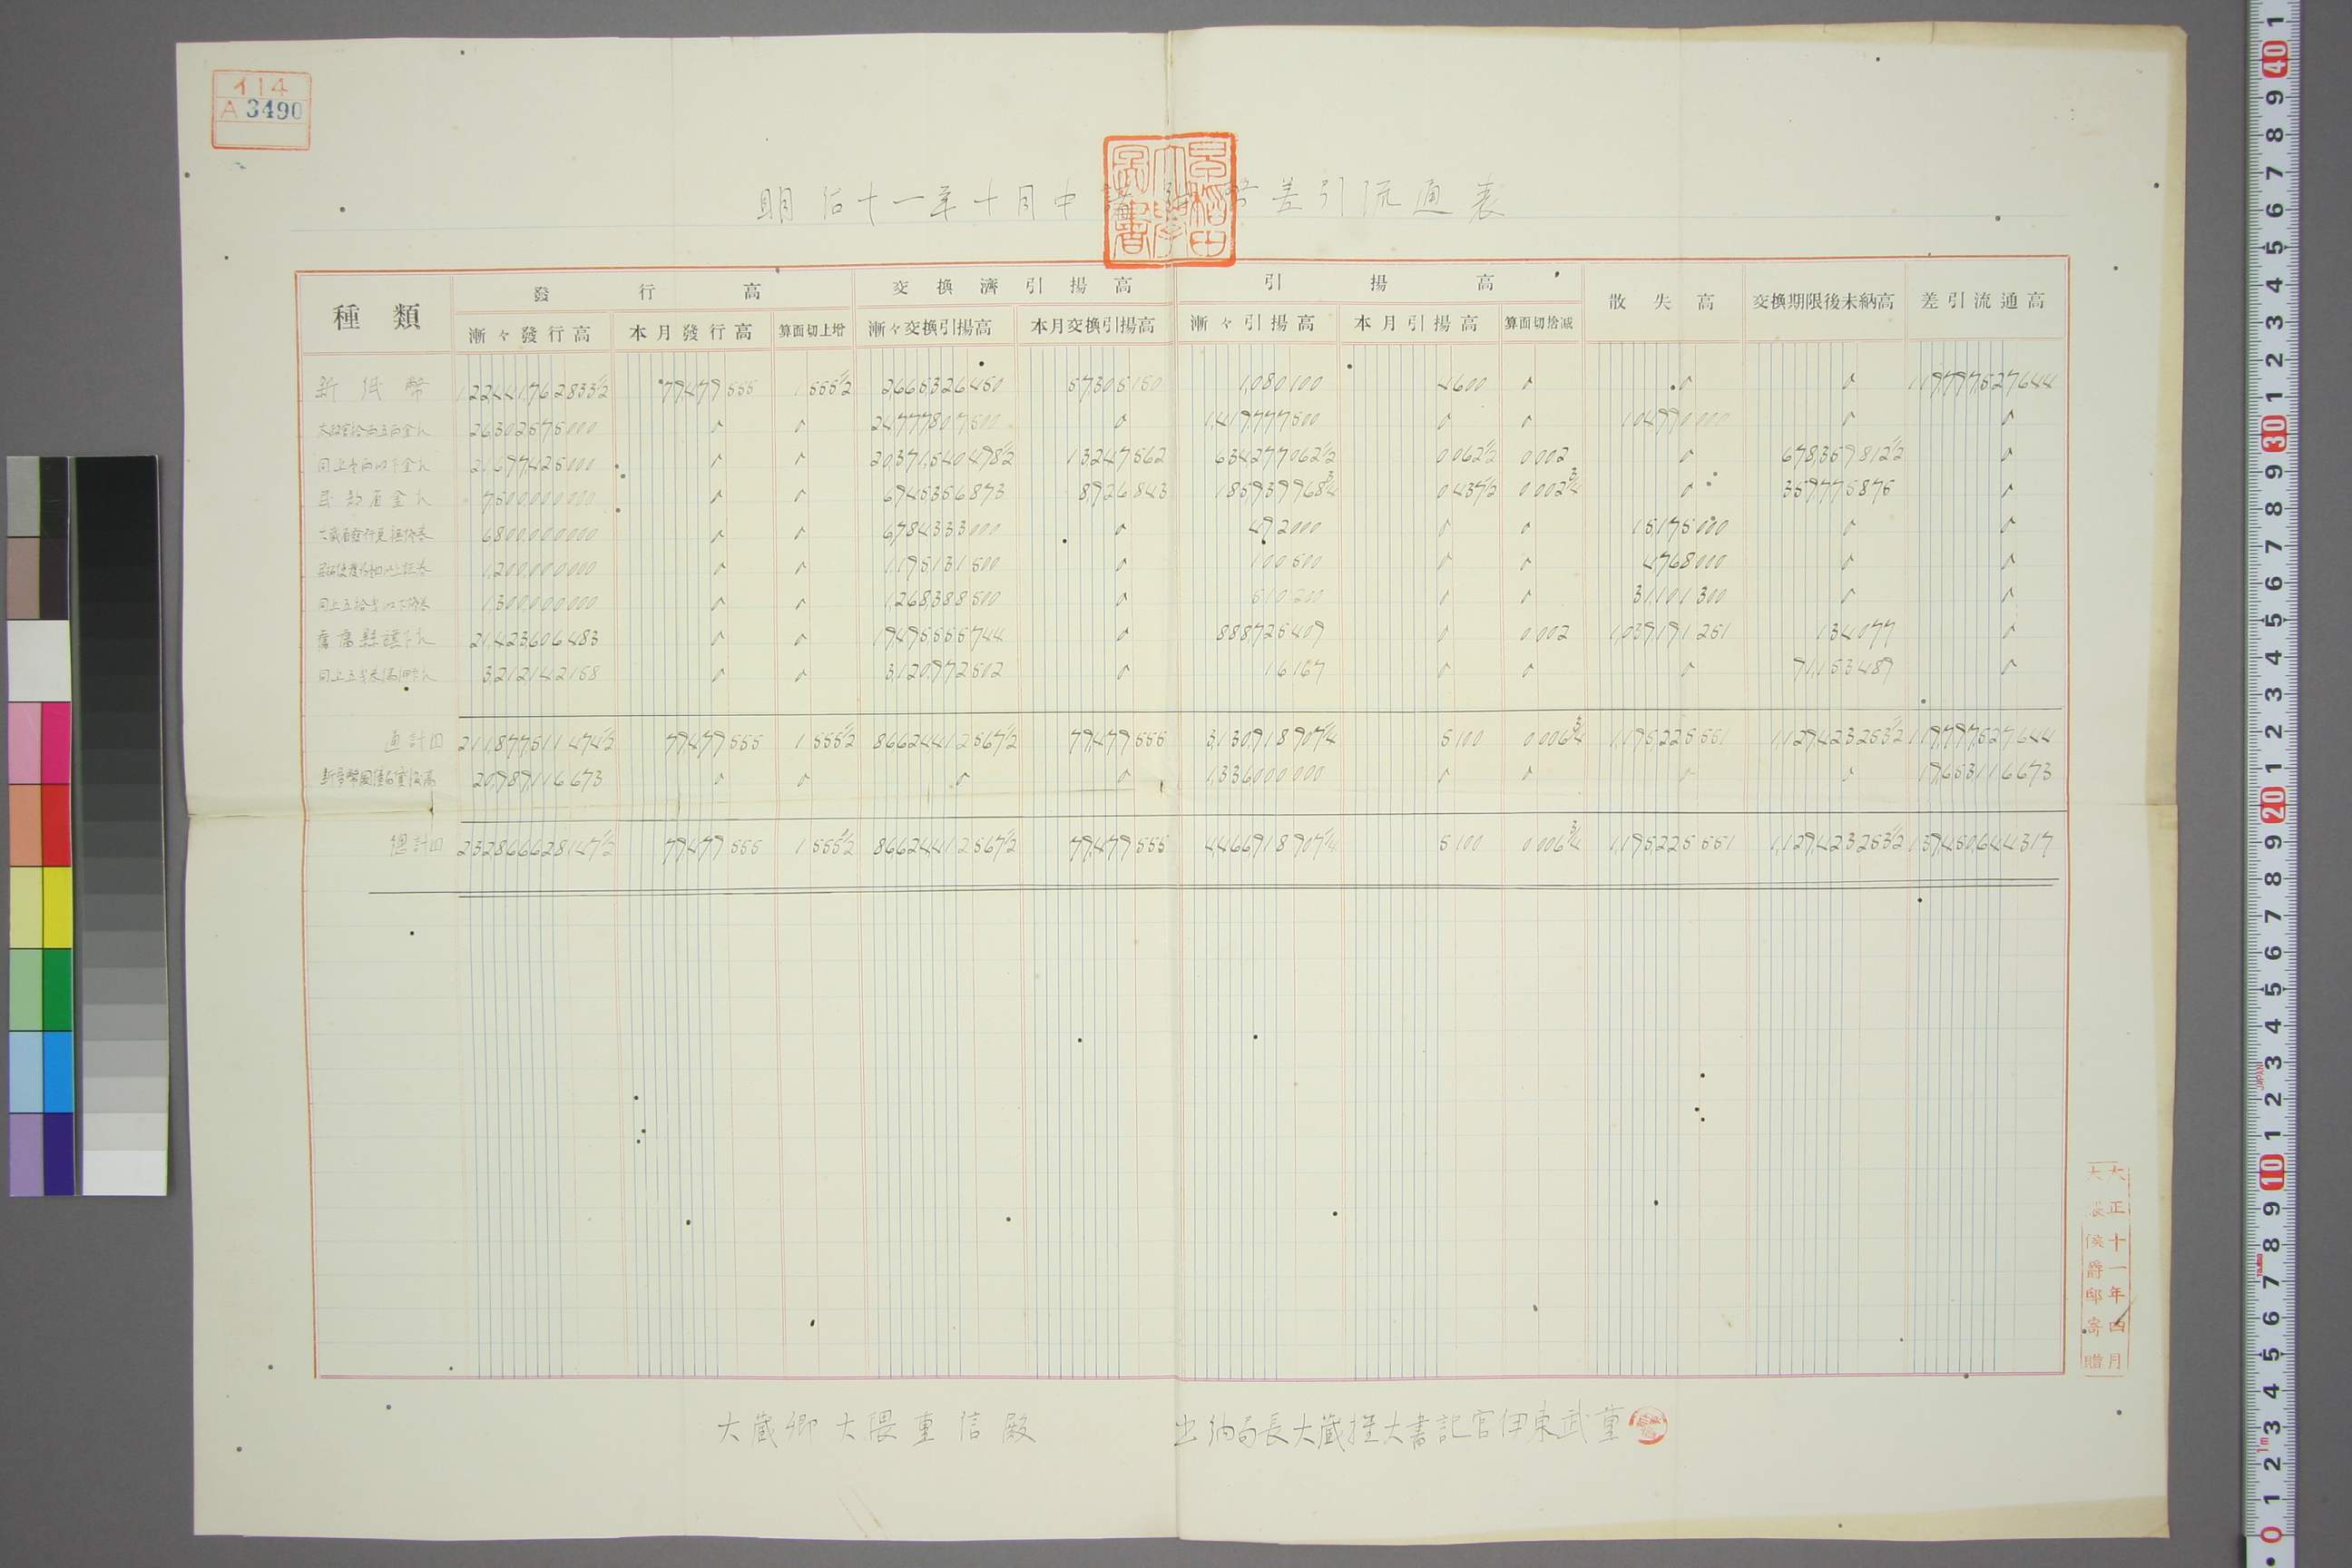 イ14
A 3490
明治十一年十月中諸紙幣差引流通表
早稲田大學圖書
種類 發行高 交換濟引揚高 引揚高 散失高 交換期限後未納高 差引流通高
漸々發行高 本月發行高 算面切上增 漸々交換引揚高 本月交換引揚高 漸々引揚高 本月引揚高 算面切捨減
新紙幣 122,441,762 833 1/2 79,479 555 1 555 1/2 2,665,326 450 57,305 150 1,080 100 4 600 119,797,527 644
26,302,575 000 24,777,807 500 1,419,777 500 104,990 000
同上壹兩以下金札 21,697,425 000 20,371,540 498 1/2 13,247 562 634,277 062 1/2 0 062 1/2 0 002 678,359 812 1/2
民部省金札 7,500,000 000 6,945,356 873 8,926 843 185,939 968 3/4 0 437 1/2 0 002 3/4 359,775 875
大藏省發行兌換證券 6,800,000 000 6,784,333 000 492 000 15,175 000
1,200,000 000 1,195,131 500 100 500 4,768 000
同上五拾錢以下證券 1,300,000 000 1,268,388 500 510 200 31,101 300
舊藩縣諸札 21,423,606 483 19,495,555 744 888,725 409 0 002 1,039,191 251 134 077
3,212,142 158 3,120,972 502 16 167 91,153 489
通計 211,877,511 474 1/2 79,479 555 1 555 1/2 86,624,412 567 1/2 79,479 555 3,130,918 907 1/4 5 100 0 006 3/4 1,195,225 551 1,129,423 253 1/2 119,797,527 644
20,989,116 673 1,336,000 000 19,653,116 673
總計 232,866,628 147 1/2 79,479 555 1 555 1/2 86,624,412 567 1/2 79,479 555 4,466,918 907 1/4 5 100 0 006 3/4 1,195,225 551 1,129,423 253 1/2 139,450,644 317
大藏卿大隈重信殿
出納局長大藏權大書記官伊東武重
大正十一年四月
大隈侯爵邸寄贈